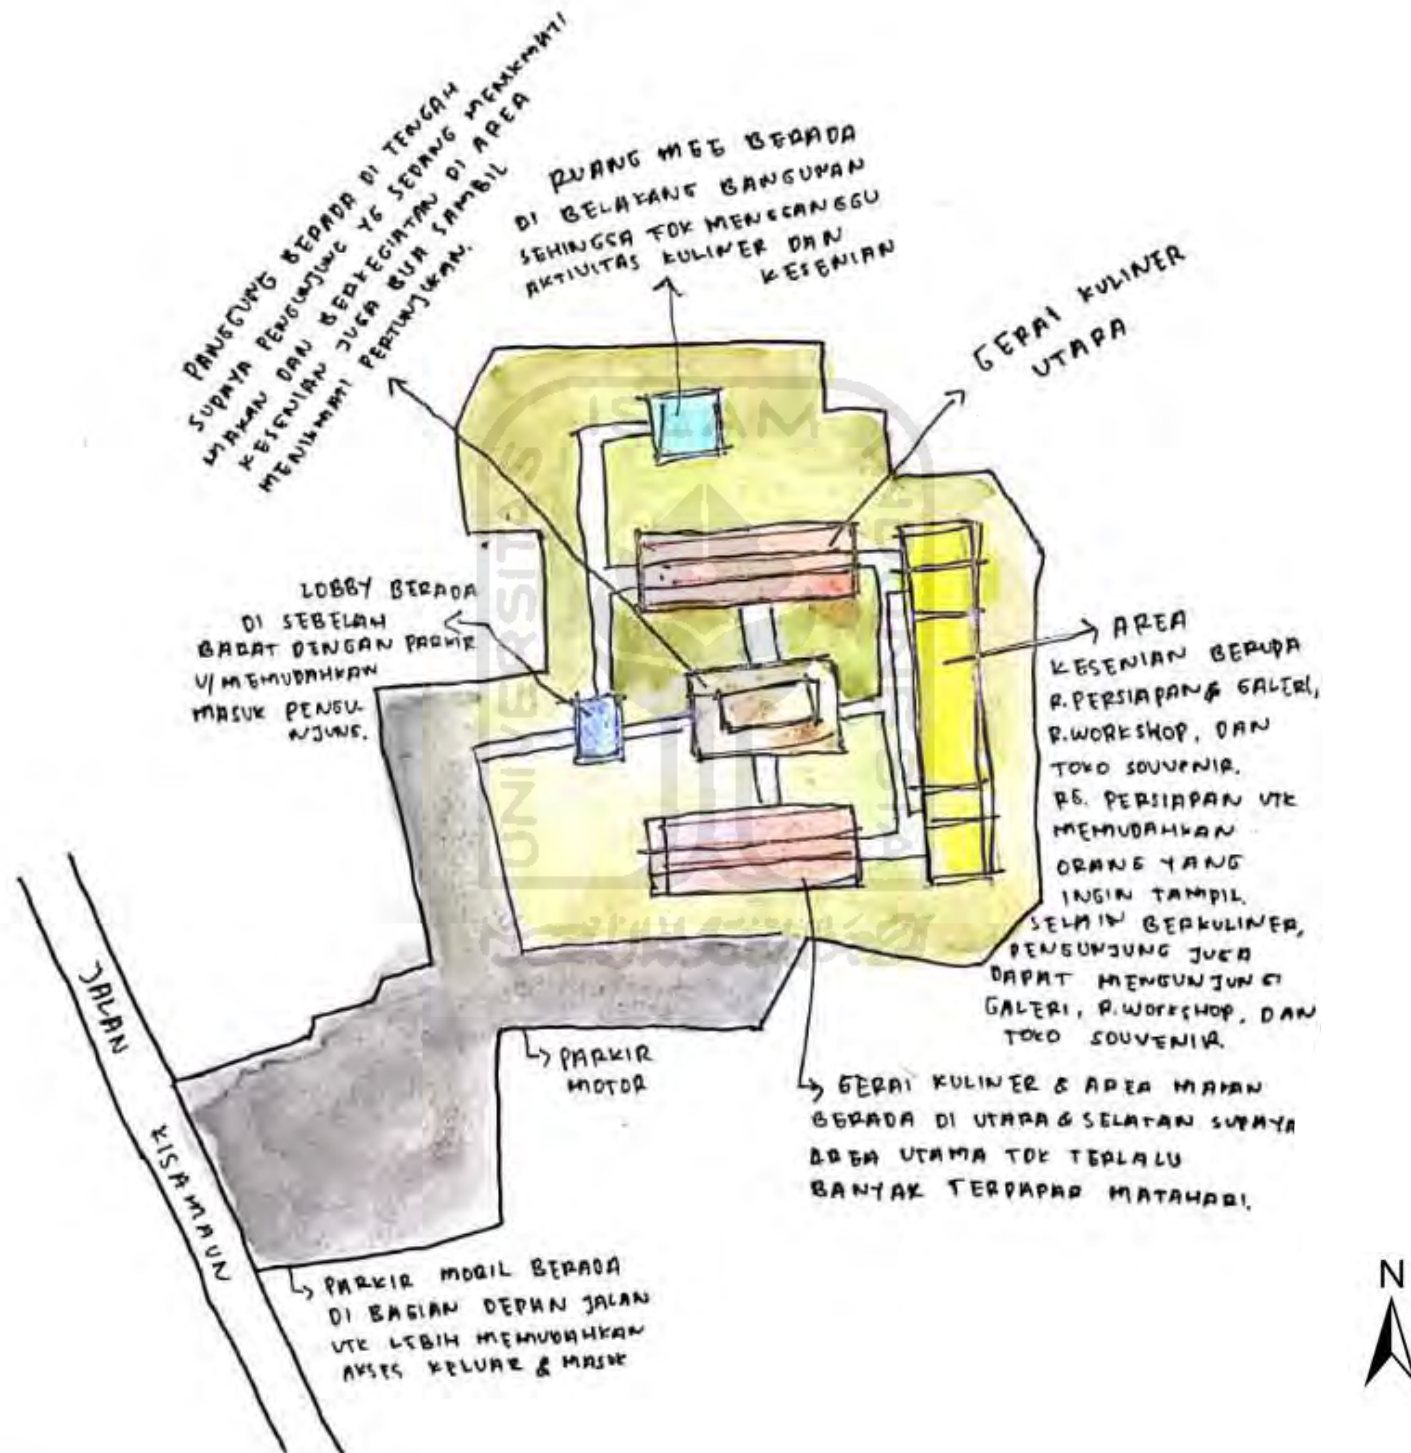 PANGGUNG BERADA DI TENGAH
SUPAYA PENGUNJUNG YG SEDANG MENIKMATI
MAKAN DAN BERKEGIATAN DI AREA
KESENIAN JUGA BISA SAMBIL
MENIKMATI PERTUNJUKAN.
RUANG MEE BERADA
DI BELAKANG BANGUNAN
SEHINGGA TDK MENGGANGGU
AKTIVITAS KULINER DAN
KESENIAN
GERAI KULINER
UTARA
LOBBY BERADA
DI SEBELAH
BARAT DENGAN PARKIR
U/ MEMUDAHKAN
MASUK PENGU-
NJUNG.
AREA
KESENIAN BERUPA
R.PERSIAPAN & GALERI,
R.WORKSHOP, DAN
TOKO SOUVENIR.
RG. PERSIAPAN UTK
MEMUDAHKAN
ORANG YANG
INGIN TAMPIL.
SELAIN BERKULINER,
PENGUNJUNG JUGA
DAPAT MENGUNJUNGI
GALERI, R.WORKSHOP, DAN
TOKO SOUVENIR.
PARKIR
MOTOR
GERAI KULINER & AREA MAKAN
BERADA DI UTARA & SELATAN SUPAYA
AREA UTAMA TDK TERLALU
BANYAK TERPAPAR MATAHARI.
JALAN KISAMAUN
PARKIR MOBIL BERADA
DI BAGIAN DEPAN JALAN
UTK LEBIH MEMUDAHKAN
AKSES KELUAR & MASUK
N
UNIVERSITAS
ISLAM
INDONESIA